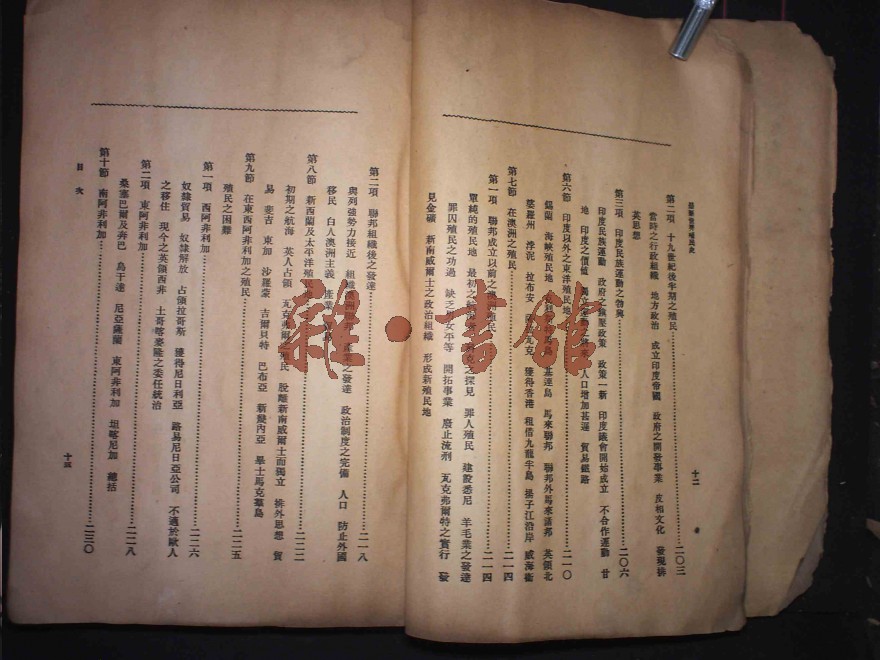 殖民史
十二
第二項 十九世紀後半期之殖民……二〇三
當時之行政組織 地方政治 成立印度帝國 政府之開發事業 反相文化 發現排
英思想
第三項 印度民族運動之勃興……二〇六
印度民族運動 政府之無壓政策 政策一新 印度議會開始成立 不合作運動 廿
地 印度之價值 獨立運動 將來 人口增加甚遲 貿易鐵路
第六節 印度以外之東洋殖民地……二一〇
錫蘭 海峽殖民地 島 基連島 馬來聯邦 聯邦外馬來藩邦 英領北
婆羅州 浡泥 拉布安 瓦克 獲得香港 租借九龍半島 揚子江沿岸 威海衞
第七節 在澳洲之殖民……二一四
第一項 聯邦成立以前之澳洲殖民……二一四
單純的殖民地 最初之 克之探見 罪人殖民 建設悉尼 羊毛業之發達
罪囚殖民之功過 缺乏 女平等 開拓事業 廢止流刑 瓦克弗爾特之實行 發
見金礦 新南威爾士之政治組織 形成新殖民地
第二項 聯邦組織後之發達……二一八
與列強勢力接近 組織 邦 產業之發達 政治制度之完備 人口 防止外國
移民 白人澳洲主義 產業 島
第八節 新西蘭及太平洋殖民地……二二二
初期之航海 英人占領 瓦克弗爾之殖民 脫離新南威爾士而獨立 排外思想 貿
易 斐吉 東加 沙羅蒙 吉爾貝特 巴布亞 新幾內亞 畢士馬克羣島
第九節 在東西阿非利加之殖民……二二五
殖民之困難
第一項 西阿非利加……二二六
奴隸貿易 奴隸解放 占領拉哥斯 獲得尼日利亞 路易尼日亞公司 不適於歐人
之移住 現今之英領西非 土哥喀麥隆之委任統治
第二項 東阿非利加……二二八
桑塞巴爾及奔巴 烏干達 尼亞薩蘭 東阿非利加 坦喀尼加 總括
第十節 南阿非利加……二三〇
目次
十三
雜·書館